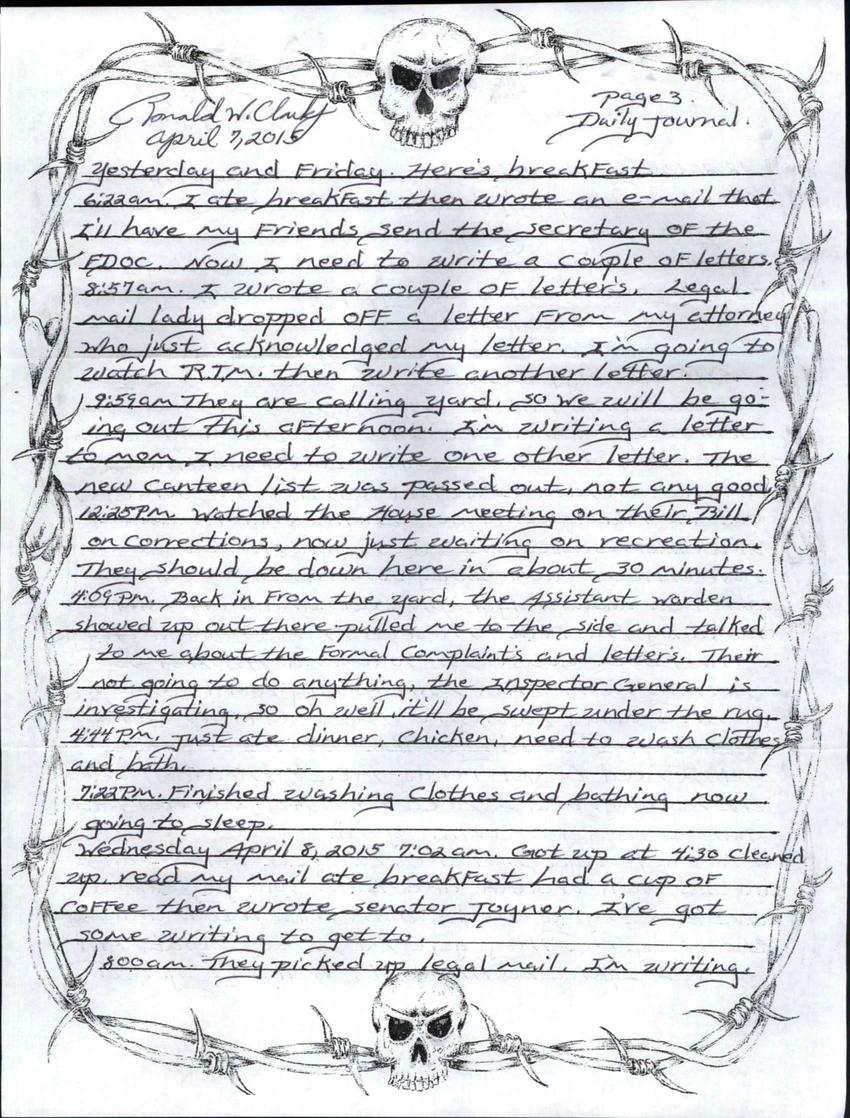 Ronald W. Clark
page 3
April 7, 2015
Daily Journal.
Yesterday and Friday. Here's breakfast
6:22am. I ate breakfast then wrote an e-mail that
I'll have my Friends send the secretary OF the
FDOC. Now I need to write a couple of letters.
8:57am. I wrote a couple OF letter's. Legal-
mail lady dropped OFF a letter From my attorney
who just acknowledged my letter. I'm going to
watch R.T.M. then write another letter.
9:59am They are calling yard, so we will be go-
ing out this afternoon. I'm writing a letter
to mom I need to write one other letter. The
new canteen list was passed out, not any good,
12:25PM. Watched the House meeting on their Bill
on Corrections, now just waiting on recreation.
They should be down here in about 30 minutes.
4:09PM. Back in From the yard, the Assistant warden
showed up out there pulled me to the side and talked
to me about the Formal Complaint's and letter's. Their
not going to do anything, the Inspector General is
investigating, so oh well, it'll be swept under the rug.
4:44PM. Just ate dinner, Chicken, need to wash Clothes
and bath.
7:22PM. Finished washing Clothes and bathing now
going to sleep.
Wednesday April 8, 2015 7:02am. Got up at 4:30 cleaned
up. read my mail ate breakfast had a cup OF
Coffee then wrote senator Joyner. I've got
some writing to get to.
8:00am. They picked up legal mail. I'm writing.